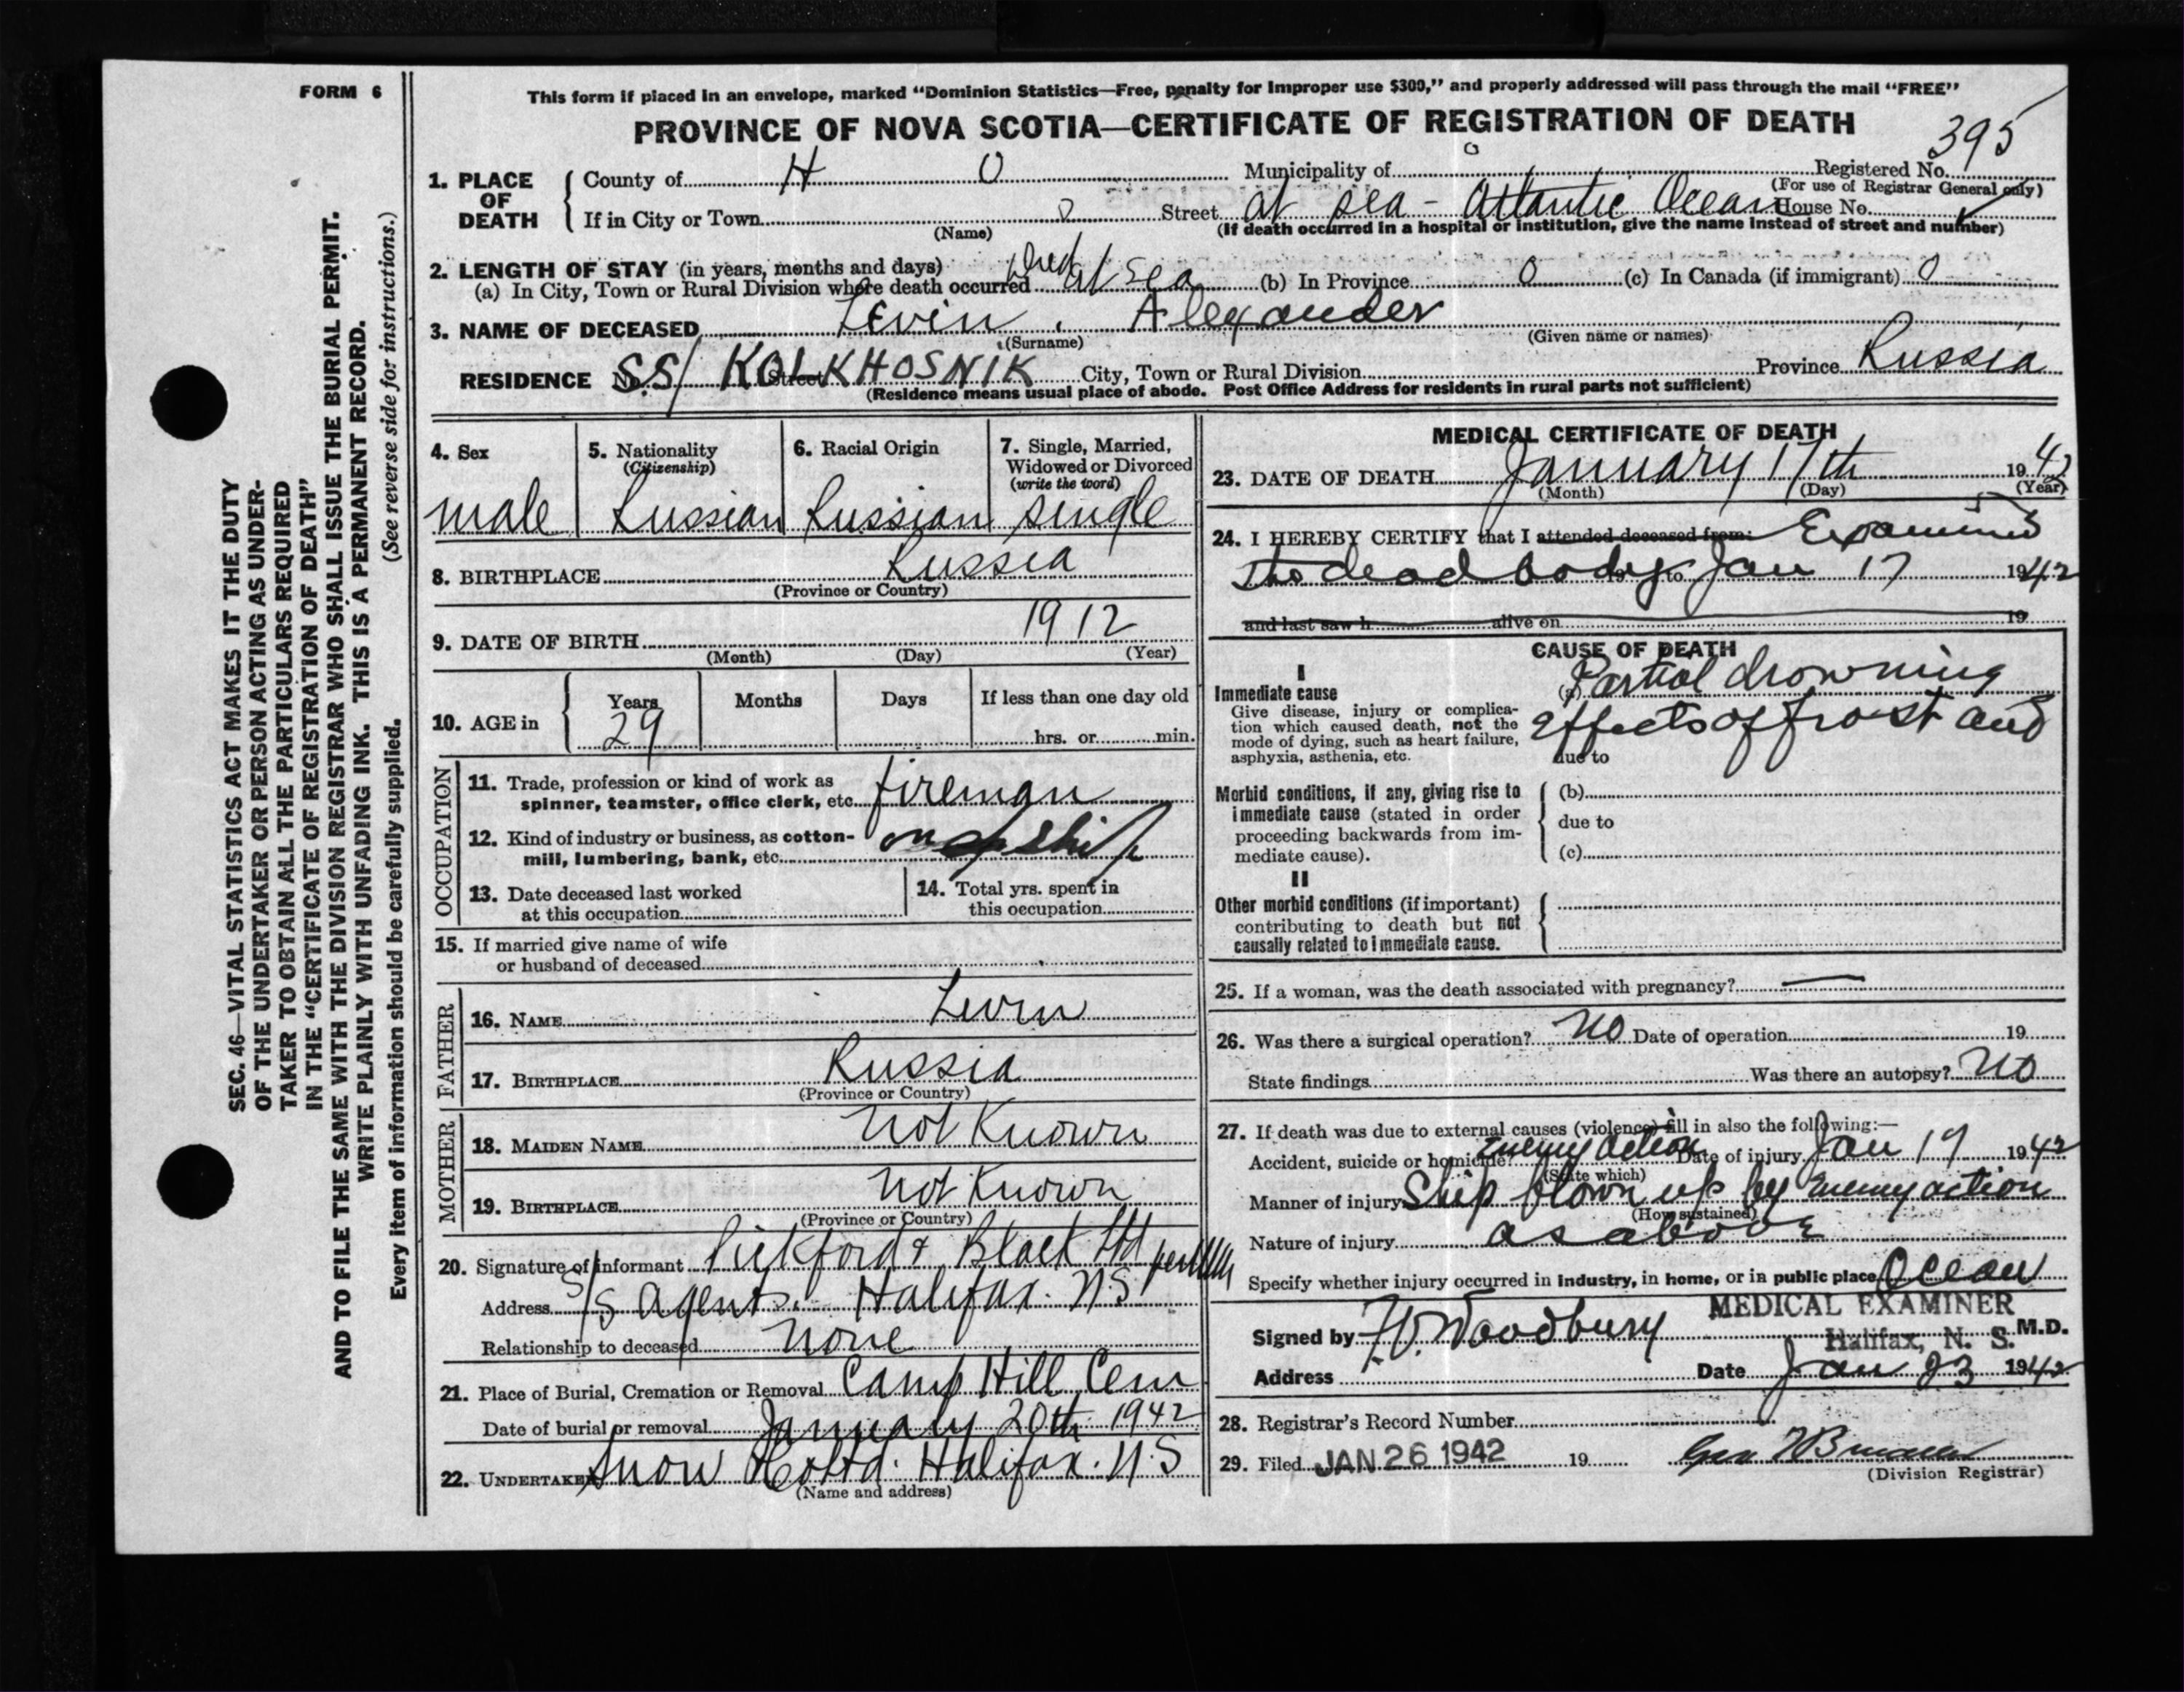 FORM 6
This form if placed in an envelope, marked “Dominion Statistics—Free, penalty for improper use $300,” and properly addressed will pass through the mail “FREE”
PROVINCE OF NOVA SCOTIA—CERTIFICATE OF REGISTRATION OF DEATH
395
1. PLACE OF DEATH
County of H O Municipality of O Registered No.
(For use of Registrar General only)
If in City or Town O Street at sea - Atlantic Ocean House No.
(Name) (If death occurred in a hospital or institution, give the name instead of street and number)
2. LENGTH OF STAY (in years, months and days)
(a) In City, Town or Rural Division where death occurred Died at sea (b) In Province O (c) In Canada (if immigrant) O
3. NAME OF DECEASED Levin, Alexander
(Surname) (Given name or names)
RESIDENCE No. S.S/ KOLKHOSNIK Street City, Town or Rural Division Province Russia
(Residence means usual place of abode. Post Office Address for residents in rural parts not sufficient)
4. Sex
male
5. Nationality
(Citizenship)
Russian
6. Racial Origin
Russian
7. Single, Married,
Widowed or Divorced
(write the word)
single
8. BIRTHPLACE Russia
(Province or Country)
9. DATE OF BIRTH 1912
(Month) (Day) (Year)
10. AGE in
Years Months Days If less than one day old
29 hrs. or min.
OCCUPATION
11. Trade, profession or kind of work as
spinner, teamster, office clerk, etc. fireman
12. Kind of industry or business, as cotton-
mill, lumbering, bank, etc. on ship
13. Date deceased last worked
at this occupation
14. Total yrs. spent in
this occupation
15. If married give name of wife
or husband of deceased
FATHER
16. NAME Levin
17. BIRTHPLACE Russia
(Province or Country)
MOTHER
18. MAIDEN NAME not Known
19. BIRTHPLACE not Known
(Province or Country)
20. Signature of informant Pickford & Black Ltd per
Address S/S agents. Halifax. N S
Relationship to deceased none
21. Place of Burial, Cremation or Removal Camp Hill Cem
Date of burial or removal January 20th 1942
22. UNDERTAKER Snow & Co Ltd. Halifax. N.S
(Name and address)
MEDICAL CERTIFICATE OF DEATH
23. DATE OF DEATH January 17th 1942
(Month) (Day) (Year)
24. I HEREBY CERTIFY that I attended deceased from: Examined
the dead body 19 to Jan 17 1942
and last saw h alive on 19
CAUSE OF DEATH
I
Immediate cause
Give disease, injury or complica-
tion which caused death, not the
mode of dying, such as heart failure,
asphyxia, asthenia, etc.
(a) Partial drowning
effects of frost and
due to
Morbid conditions, if any, giving rise to
immediate cause (stated in order
proceeding backwards from im-
mediate cause).
(b)
due to
(c)
II
Other morbid conditions (if important)
contributing to death but not
causally related to immediate cause.
25. If a woman, was the death associated with pregnancy? —
26. Was there a surgical operation? No Date of operation 19
State findings Was there an autopsy? No
27. If death was due to external causes (violence) fill in also the following:—
Accident, suicide or homicide? Enemy action Date of injury Jan 17 1942
(State which)
Manner of injury Ship blown up by Enemy action
(How sustained)
Nature of injury as above
Specify whether injury occurred in industry, in home, or in public place Ocean
MEDICAL EXAMINER
Signed by Woodbury Halifax, N. S. M.D.
Address Date Jan 23 1942
28. Registrar's Record Number
29. Filed JAN 26 1942 19
(Division Registrar)
SEC. 46—VITAL STATISTICS ACT MAKES IT THE DUTY
OF THE UNDERTAKER OR PERSON ACTING AS UNDER-
TAKER TO OBTAIN ALL THE PARTICULARS REQUIRED
IN THE “CERTIFICATE OF REGISTRATION OF DEATH”
AND TO FILE THE SAME WITH THE DIVISION REGISTRAR WHO SHALL ISSUE THE BURIAL PERMIT.
WRITE PLAINLY WITH UNFADING INK. THIS IS A PERMANENT RECORD.
(See reverse side for instructions.)
Every item of information should be carefully supplied.